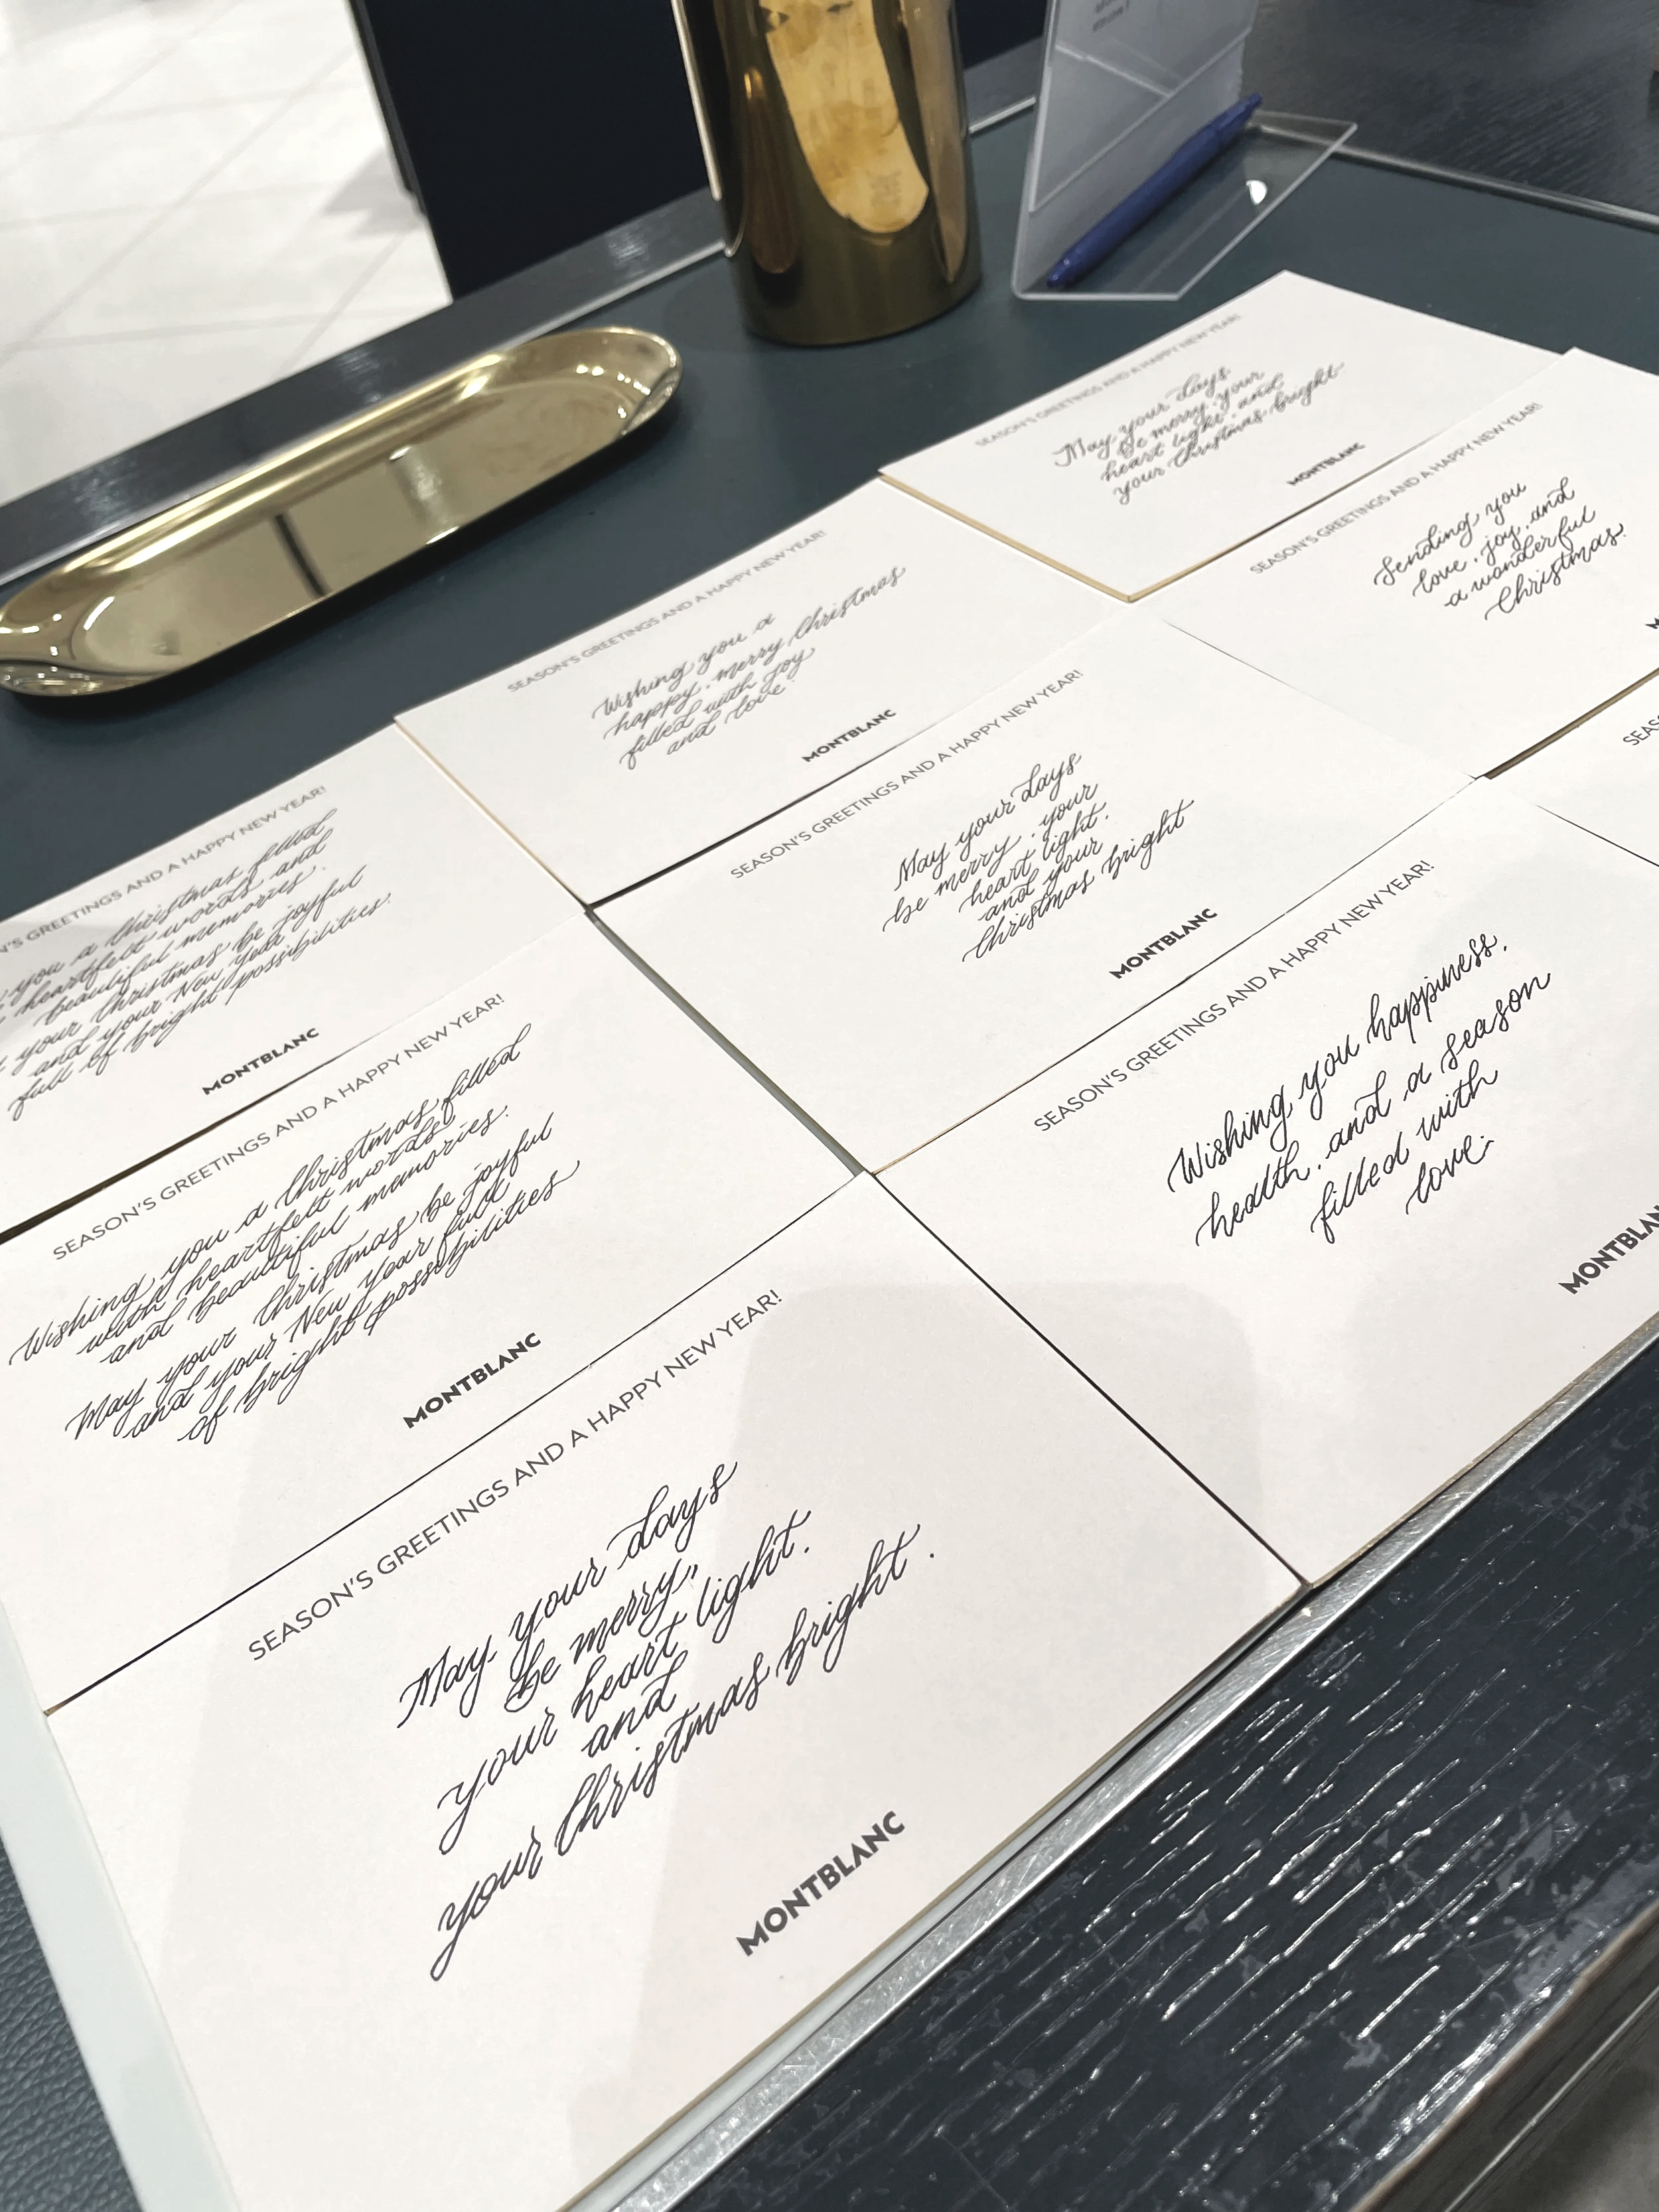 SEASON'S GREETINGS AND A HAPPY NEW YEAR!
May your days
be merry, your
heart light, and
your Christmas bright
MONTBLANC
SEASON'S GREETINGS AND A HAPPY NEW YEAR!
Sending you
love, joy, and
a wonderful
Christmas.
SEASON'S GREETINGS AND A HAPPY NEW YEAR!
Wishing you a
happy, merry Christmas
filled with joy
and love.
MONTBLANC
SEASON'S GREETINGS AND A HAPPY NEW YEAR!
May your days
be merry, your
heart light,
and your
Christmas bright
MONTBLANC
GREETINGS AND A HAPPY NEW YEAR!
you a Christmas filled
heartfelt words and
beautiful memories.
your Christmas be joyful
and your New Year
full of bright possibilities.
MONTBLANC
SEASON'S GREETINGS AND A HAPPY NEW YEAR!
Wishing you a Christmas filled
with heartfelt words
and beautiful memories.
May your Christmas be joyful
and your New Year full
of bright possibilities
MONTBLANC
SEASON'S GREETINGS AND A HAPPY NEW YEAR!
Wishing you happiness,
health, and a season
filled with
love.
SEASON'S GREETINGS AND A HAPPY NEW YEAR!
May your days
be merry,
your heart light.
and
your Christmas bright.
MONTBLANC